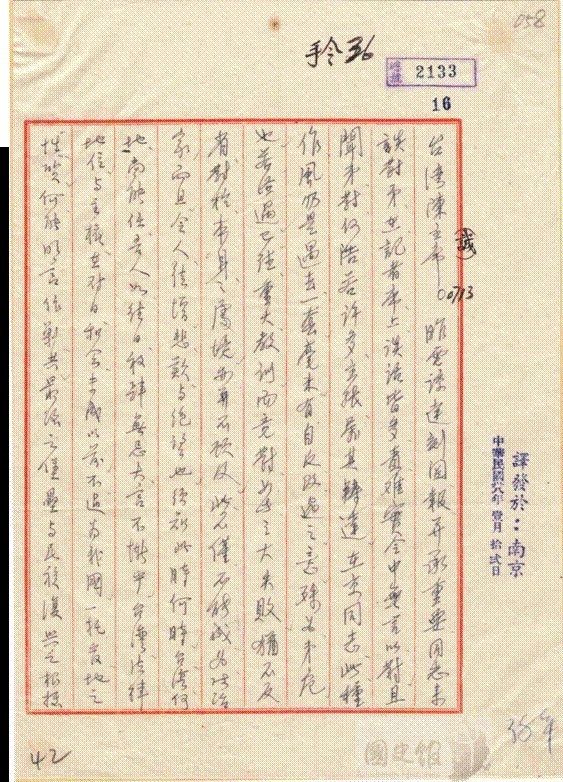 058
手令36
總號 2133
16
台灣陳主席(誠) 0073 昨電諒達刻因報并承重要同志來
談對弟在記者席上談話皆多責難實令中無言以對且
聞弟對何浩若許多主張希其轉達在京同志此種
作風仍是過去一套毫未有自反改過之意殊為弟危
也吾儕遭已往重大教訓而竟對如此之大失敗猶不反
省對於本身之處境亦毫不顧及此不僅不能成為政治
家而且令人徒增悲歎與絕望也須知此時何時台灣何
地尚能任吾人如往日放肆無忌大言不慚乎台灣法律
地位與主權在對日和會未成以前不過為我國一託管地之
性質何能明言作剿共最後之堡壘與民族復興之根據
譯發於:南京
中華民國卅八年壹月拾弍日
38年
42
國史館